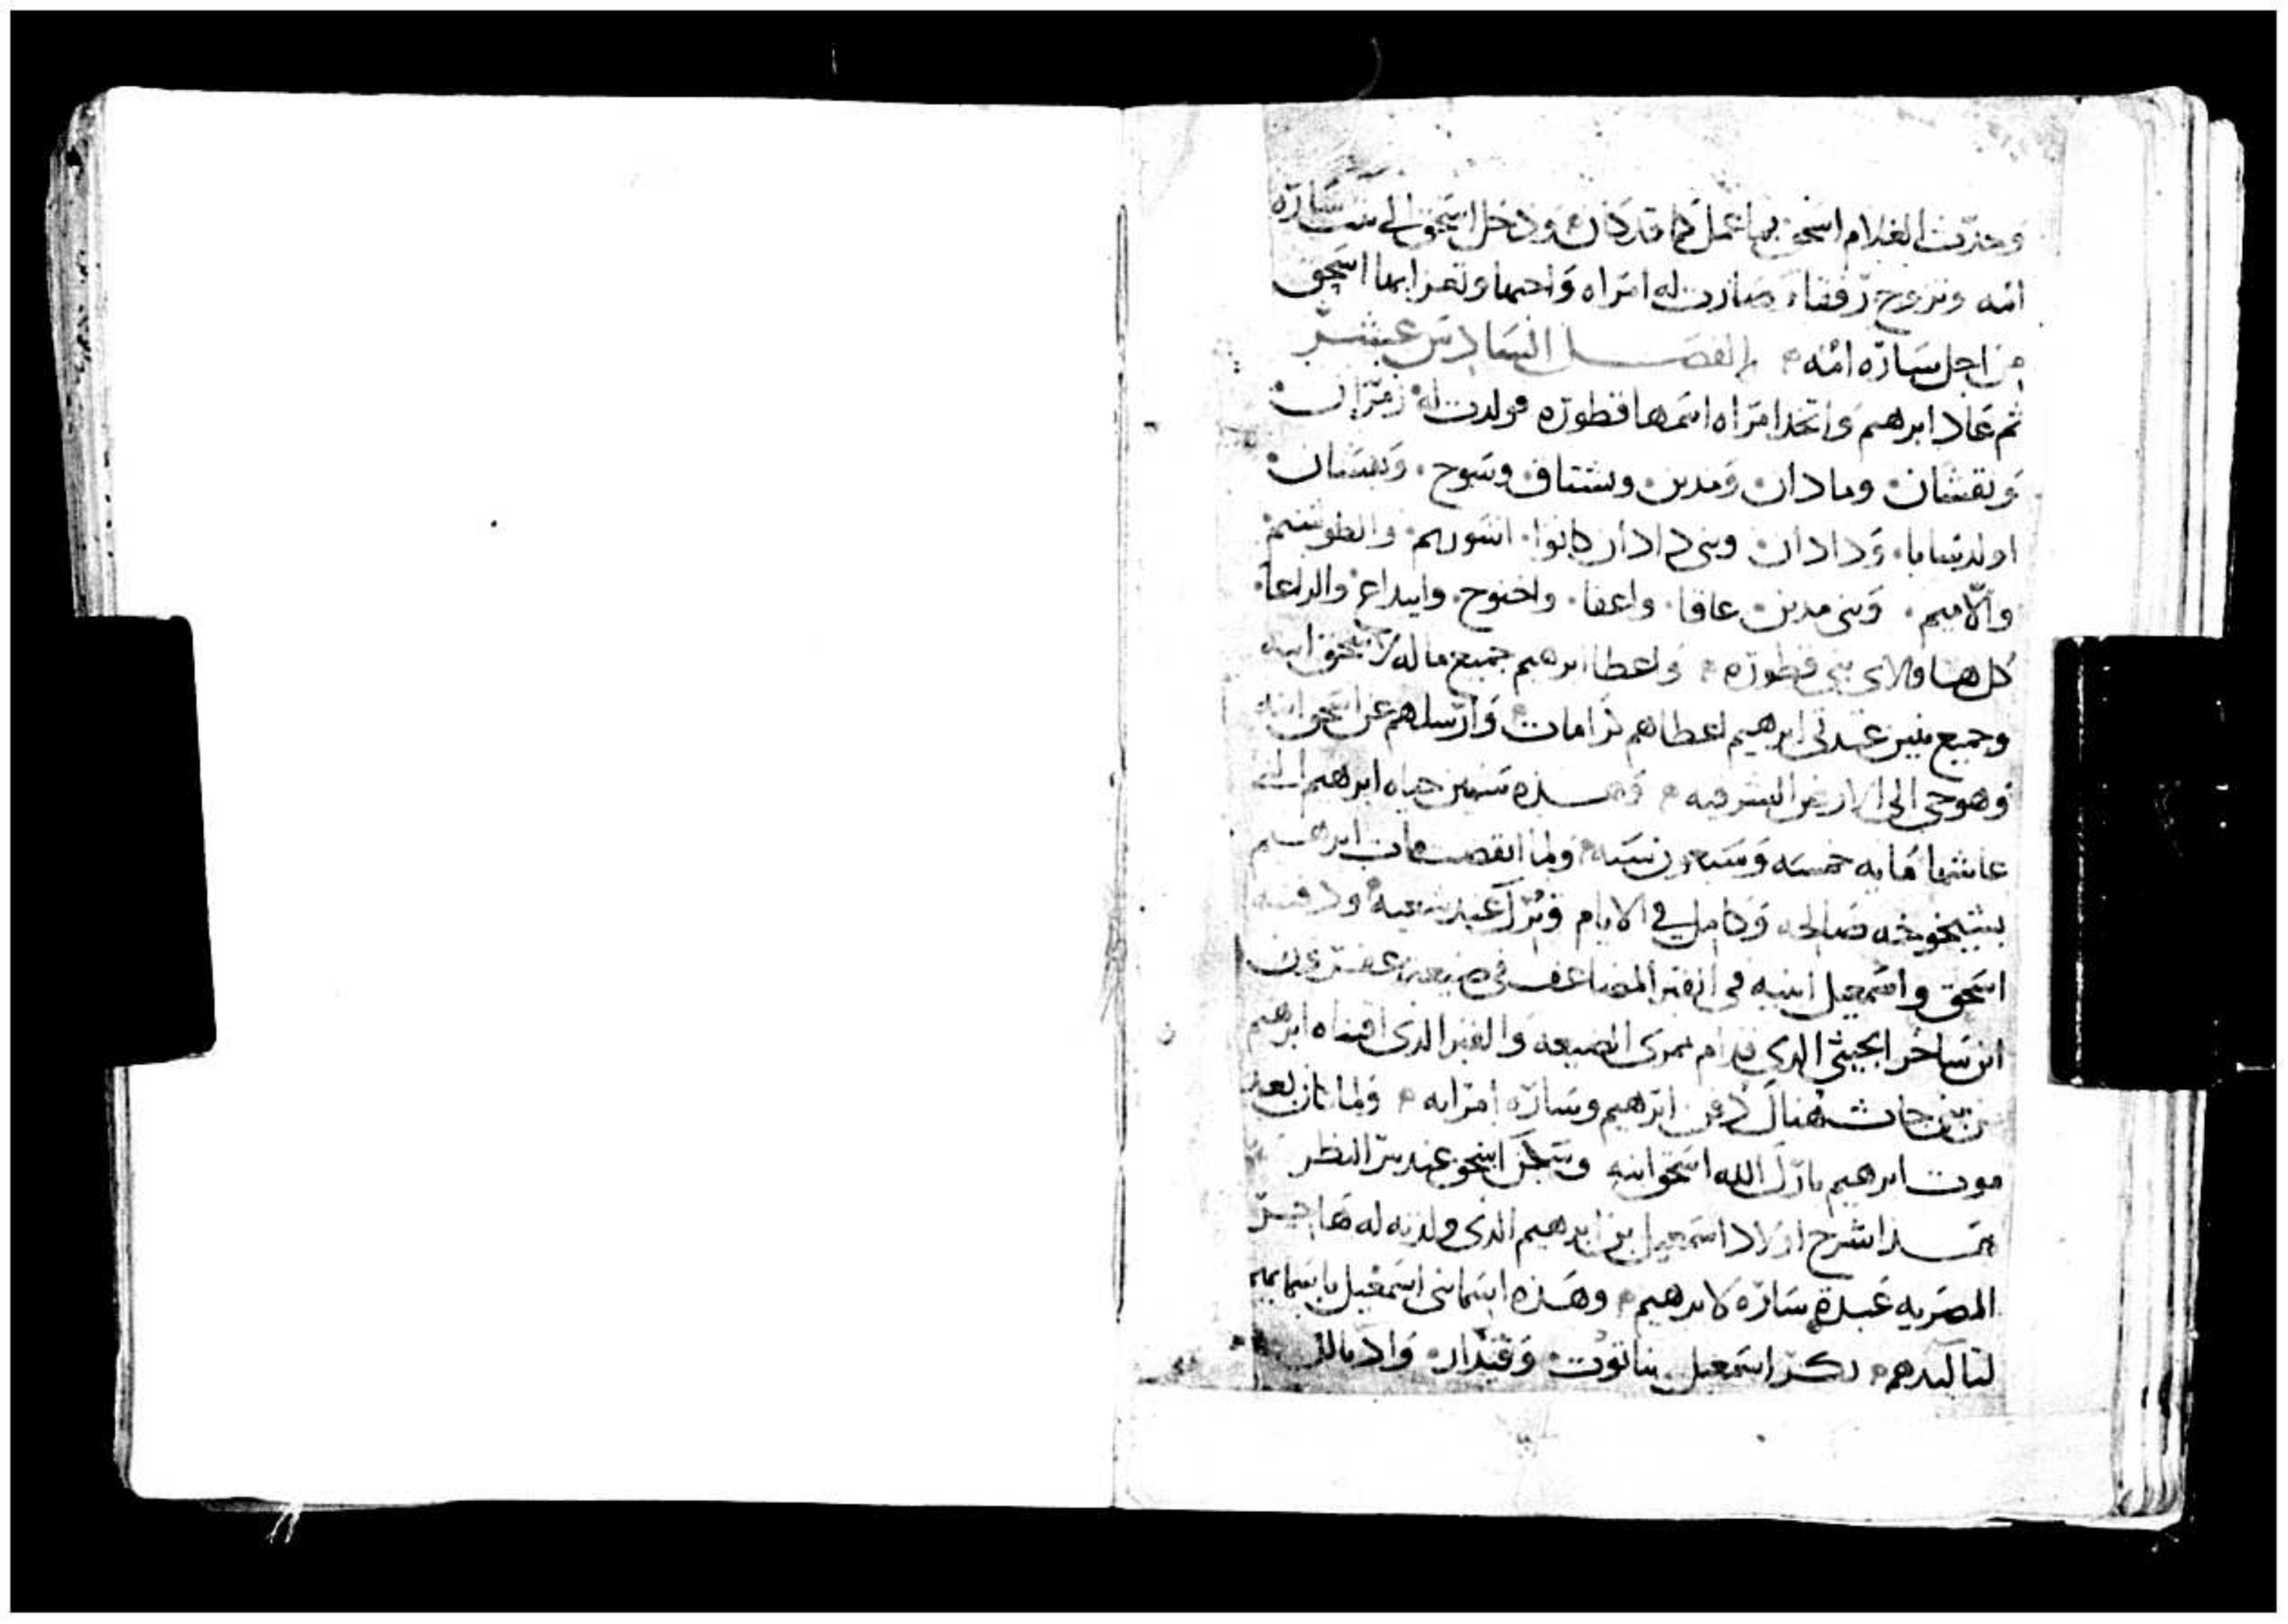 وحدت الغلام اسحق بما عمل كما قد كان ودخل اسحق الى بيت سارّه
امه وتزوج رفقا، صارت له امراه واحبها وتعزا بها اسحق
من اجل سارّه امه الفصل السادس عشر
ثم عاد ابرهيم واتخد امراه اسمها قطوره فولدت له زمران
ويقشان ومادان ومدين ويشتاق وسوح ويقسان
اولد سابا ودادان وبني دادان كانوا اسوريم والطوشيم
والاميم وبني مدين عافا واعفا واخنوح وابيداع والداعا
كل هاولاى بني قطوره واعطا ابرهيم جميع ماله لاسحق ابنه
وجميع بنين عبدتي ابرهيم اعطاهم كرامات وارسلهم عن اسحق ابنه
وهو حي الى الارض الشرقيه وهذه سنين حياه ابرهيم التى
عاشها مايه خمسه وسبعون سنه ولما انقضت مات ابرهيم
بشيخوخه صالحه وكامل في الايام وترك عند شعبه ودفنه
اسحق واسمعيل ابنيه في القبر المضاعف في ضيعه عفرون
ابن ساخر الحيثي الدي قدام ممرى الضيعه والقبر الدى اقتناه ابرهيم
من بني حاث هناك دفن ابرهيم وساره امراته ولما كان بعد
موت ابرهيم بارك الله اسحق ابنه وسكن اسحق عند بير النظر
هذا شرح اولاد اسمعيل بن ابرهيم الدى ولدته له هاجر
المصريه عبدة ساره لابرهيم وهذه اسما بني اسمعيل باسمايهم
لتاليدهم بكر اسمعيل بنا توت وقيدار وادبال